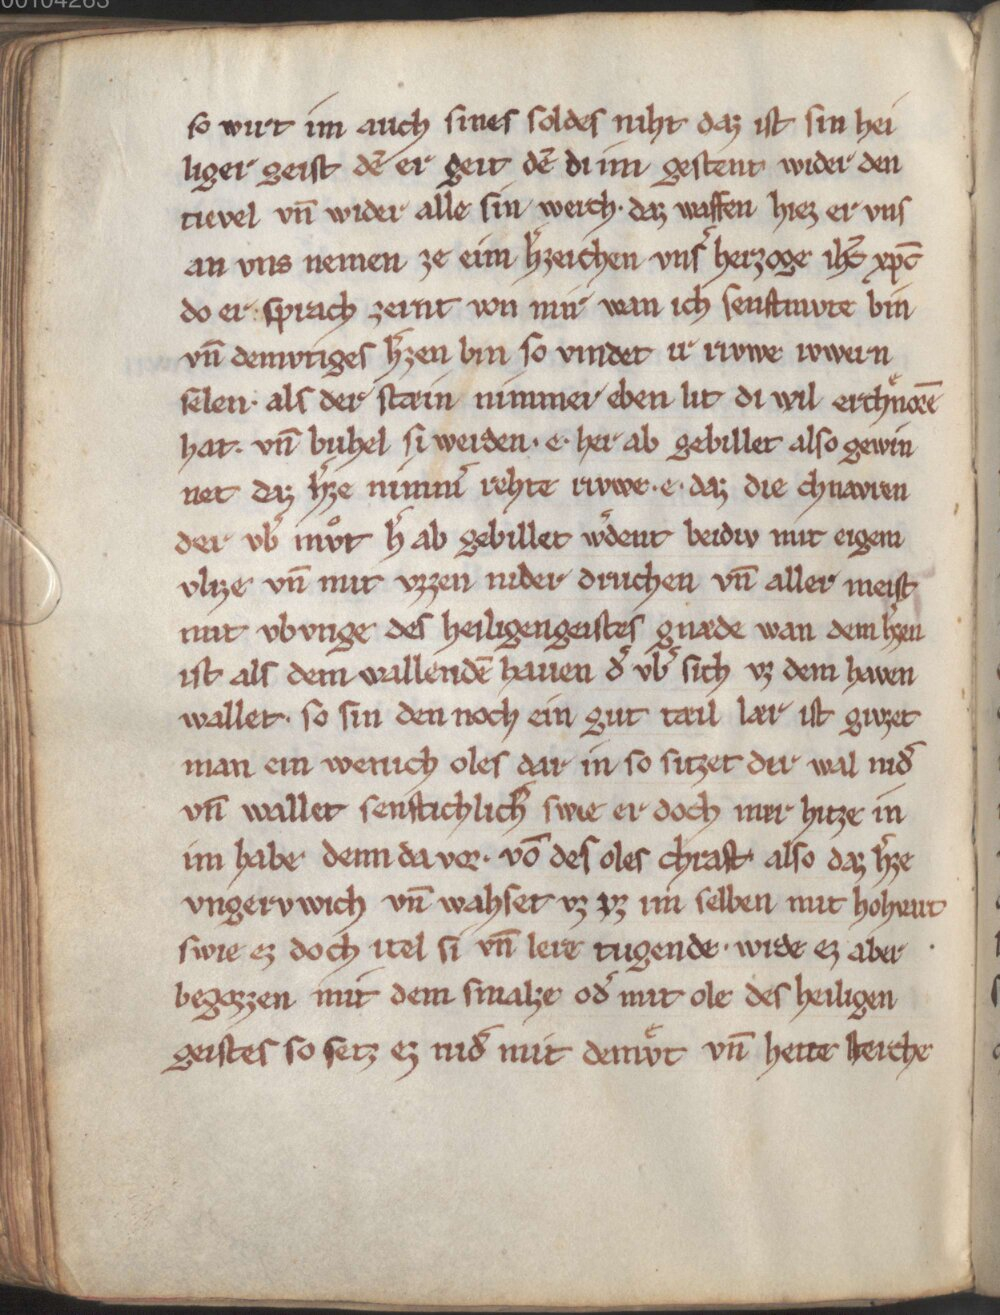 00104263
so wirt im auch sines soldes niht daz ist sin hei
liger geist dē er geit dē di im gestent wider den
tiuvel vn̄ wider alle sin werch · daz waffen hiez er vns
an vns nemen ze eim h͛zeichen vns͛ herzoge ih̄c xp̄c
do er sprach lernt von mir wan ich senftmvte bin
vn̄ demvtiges h͛zen bin so vindet ir rvwe ivwern
selen · als der stain nimmer eben lit di wil er chnorrē
hat · vn̄ buhel si werden · e · her ab gebillet also gewin
net daz h͛ze nimm͛ rehte rvwe · e · daz die chnavren
der vb͛ mvͦt h͛ ab gebillet w͛dent beidiv mit eigem
vlize vn̄ mit vzzen nider druchen vn̄ aller meist
mit vbvnge des heiligengeistes gnade wan dem h͛zen
ist als dem wallendē haven d͛ vb͛ sich vz dem haven
wallet · so sin den noch ein gut tæil lær ist givzet
man ein wenich oles dar in so sitzet dir wal nid͛
vn̄ wallet senftichlich͛ swie er doch mer hitze in
im habe denn da vor · vō des oles chraft · also daz h͛ze
vngerv̂wich vn̄ wahset vz vz im selben mit hohvart
swie ez doch itel si vn̄ lere tugende · wirde ez aber
begozzen mit dem smalze od͛ mit ole des heiligen
geistes so setz ez nid͛ mit demvͤt vn̄ hette sterche